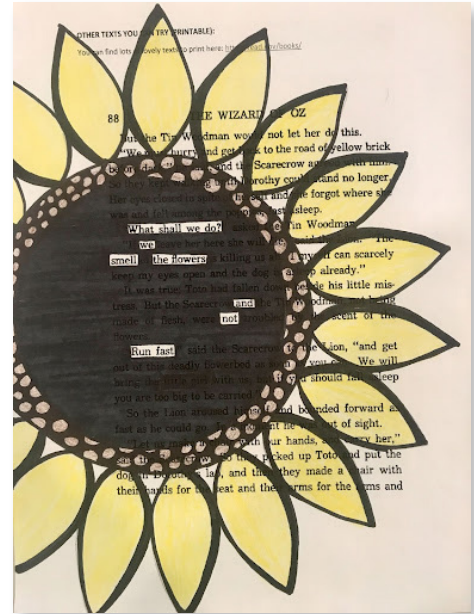 OTHER TEXTS YOU TRY (PRINTABLE):
You can find lots lovely texts to print here:
88 THE WIZARD OF OZ
But the Tin Woodman would not let her do this.
"We hurry and get back to the road of yellow brick
and the Scarecrow
So they kept walking Dorothy could stand no longer.
Her eyes closed in she forgot where she
was and fell among the asleep.
What shall we do? Tin Woodman
we leave her here she will The
smell the flowers is killing us all can scarcely
keep my eyes open and the dog is already."
It was true; Toto had fallen down beside his little mis-
tress. But the Scarecrow and the Tin Woodman not being
made of flesh, were not scent of the
flowers.
Run fast said the Scarecrow to the Lion, "and get
out of this deadly flowerbed as you can. We will
bring the little girl with us, but if you should fall asleep
you are too big to be carried."
So the Lion aroused himself and bounded forward as
fast as he could go. In he was out of sight.
"Let us make with our hands, and carry her,"
said So they picked up Toto and put the
dog in Dorothy's lap, and then they made a chair with
their hands for the seat and their arms for the arms and